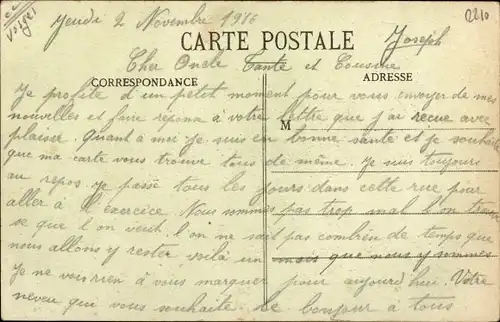 Jeudi 2 Novembre 1916
2210
CARTE POSTALE
Joseph
Cher Oncle Tante et Cousine
CORRESPONDANCE
ADRESSE
Je profite d'un petit moment pour vous envoyer de mes
nouvelles et faire repona à votre lettre que j'ai recue avec
M
plaisir. quant à moi je suis en bonne sante et je souhaite
que ma carte vous trouve tous de même. Je suis toujours
au repos je passe tous les jours dans cette rue pour
aller à l'exercice. Nous sommes pas trop mal l'on trouve
se que l'on veut. l'on ne sait pas combien de temps que
nous allons y rester voilà un mois que nous y sommes
Je ne vous rien à vous marquer pour aujourd'hui. Votre
neveu qui vous souhaite le bonjour à tous